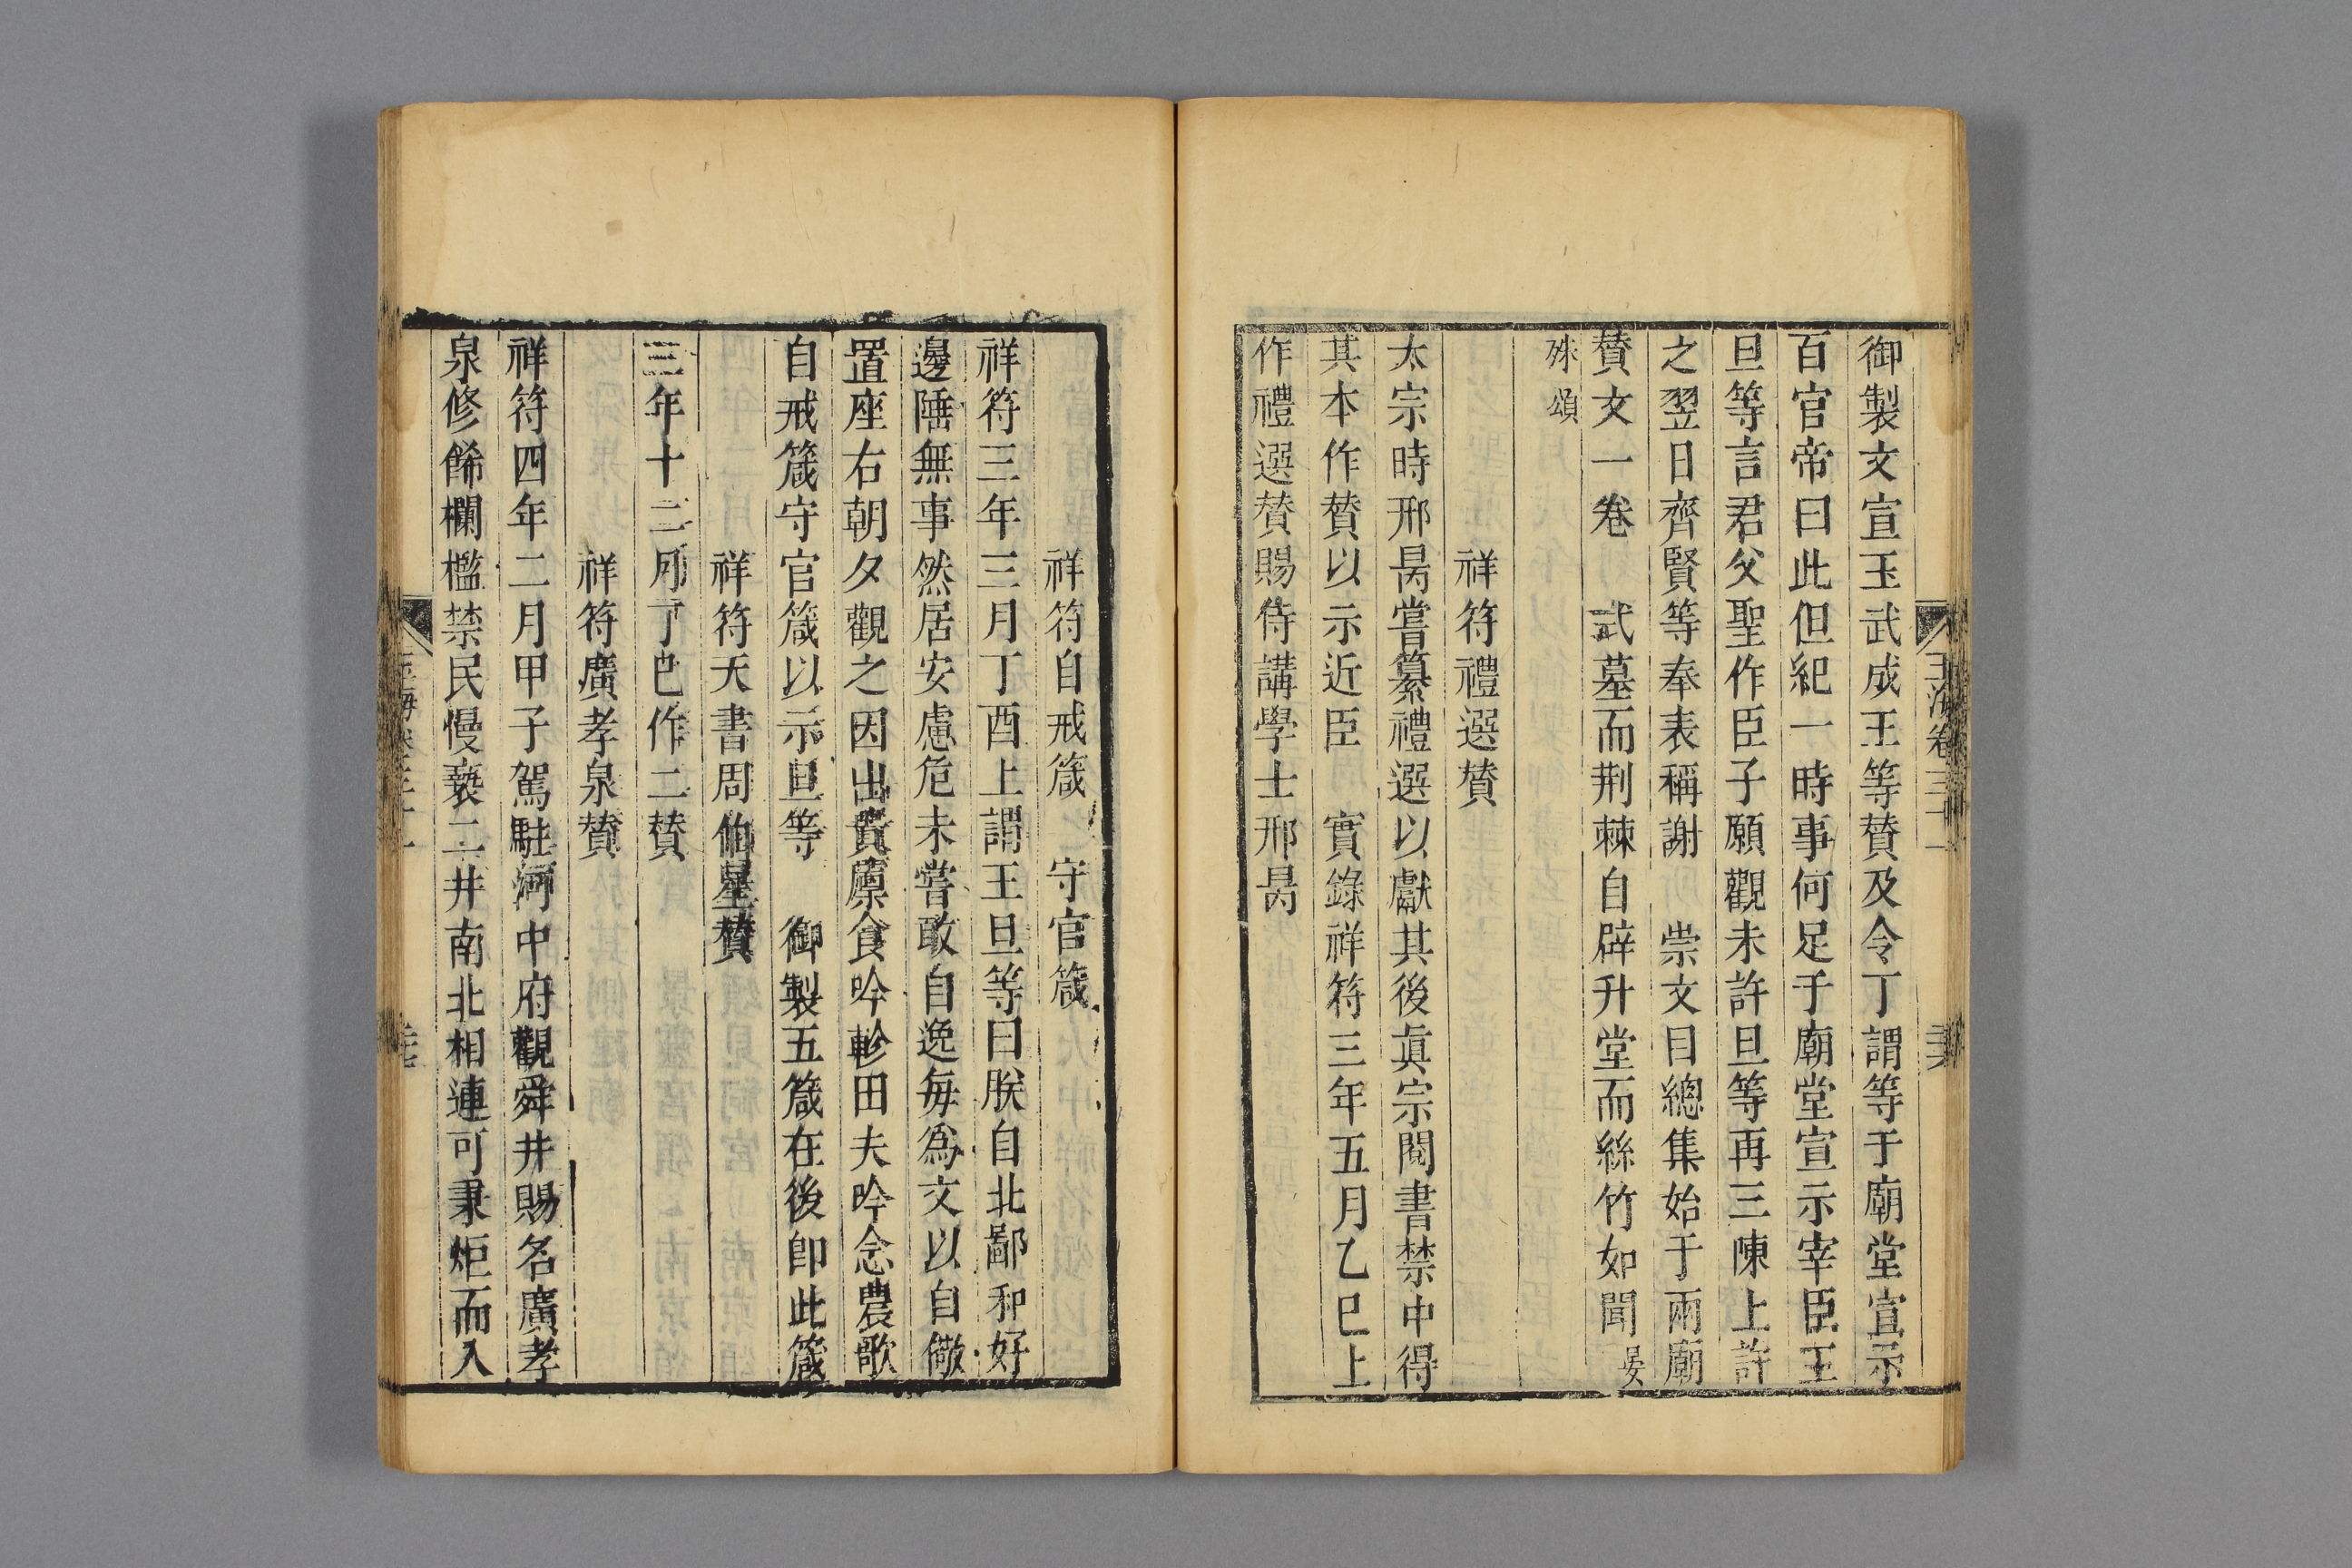 御製文宣王武成王等賛及令丁謂等于廟堂宣示
百官帝曰此但紀一時事何足于廟堂宣示宰臣王
旦等言君父聖作臣子願觀未許旦等再三陳上許
之翌日齊賢等奉表稱謝　崇文目總集始于兩廟
賛文一卷　式墓而荆棘自辟升堂而絲竹如聞晏
殊頌
祥符禮選賛
太宗時邢昺嘗纂禮選以獻其後眞宗閱書禁中得
其本作賛以示近臣　實錄祥符三年五月乙巳上
作禮選賛賜侍講學士邢昺
玉海卷三十一
祥符自戒箴　守官箴
祥符三年三月丁酉上謂王旦等曰朕自北鄙和好
邊陲無事然居安慮危未嘗敢自逸每爲文以自儆
置座右朝夕觀之因出責廪食吟軫田夫吟念農歌
自戒箴守官箴以示旦等　御製五箴在後卽此箴
祥符天書周伯星賛
三年十二月丁巳作二賛
祥符廣孝泉賛
祥符四年二月甲子駕駐河中府觀舜井賜名廣孝
泉修餙欄檻禁民慢䙝二井南北相連可秉炬而入